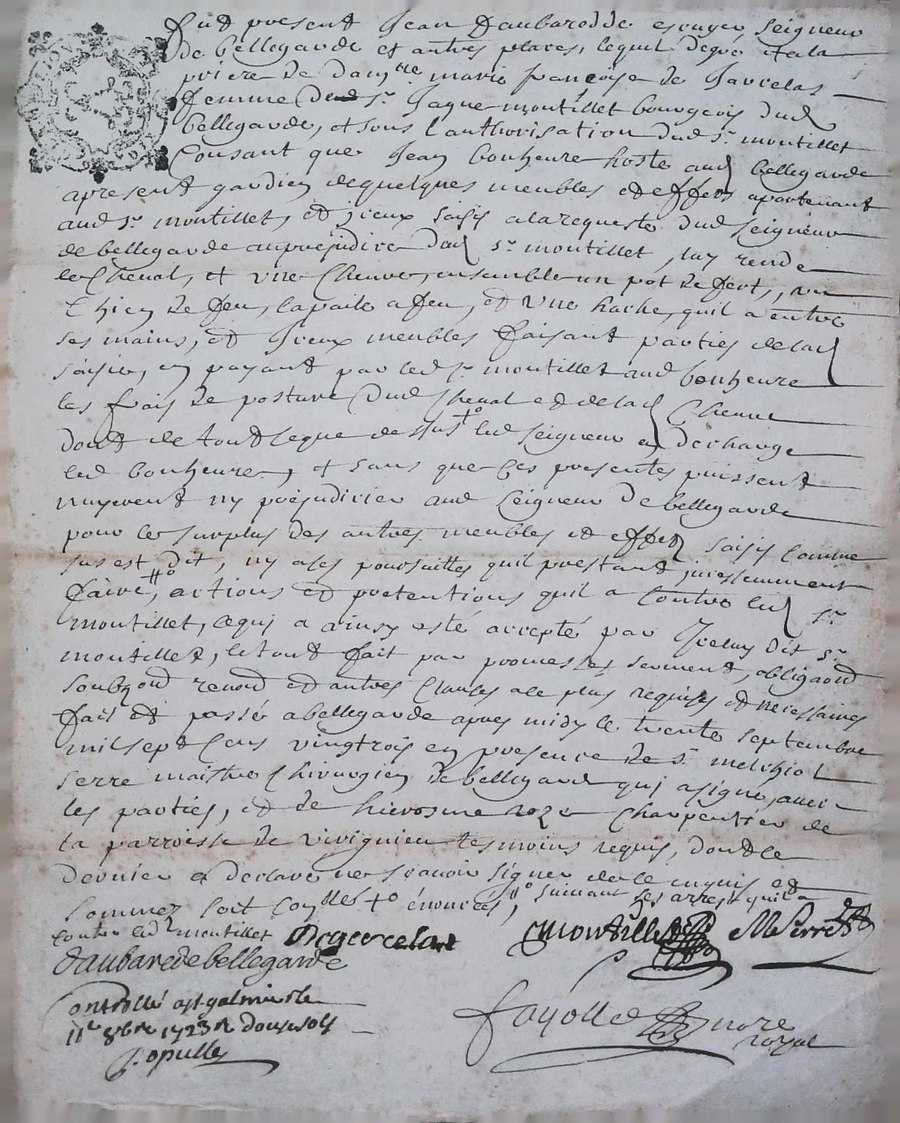 fut present Jean Daubaredde escuyer seigneur
de bellegarde et autres places, lequel de gre et a la
priere de dam.lle marie francoise de Garcelas
femme dud sr. Jaque montillet bourgeois dud
bellegarde, et sous l'authorisation dud sr. montillet
Consant que Jean bonheure hoste aud bellegarde
apresent gardien de quelques meubles et effets apartenant
aud sr. montillet, et iceux saisis a la requeste dud seigneur
de bellegarde au prejudice dud sr. montillet, luy rende
le Cheval, et une Chevre, ensemble un pot de fert, un
Chien de feu, la paile a feu, et une hache, qu'il a entre
ses mains, et iceux meubles faisant parties de lad
saisie, en payant par led sr montillet aud bonheure
les frais de posture dud Cheval et de lad Chevre
dont et de tout ce que dessus led seigneur en decharge
led bonheure, et sans que ces presentes puissent
nuyre ny prejudicier aud seigneur de bellegarde
pour le surplus des autres meubles et effets saisis comme
sus est dit, ny a ses poursuittes qu'il pretand incessamment
faire, #o actions et pretentions qu'il a Contre led sr.
montillet, ce qui a ainsy esté accepté par Iceluy dit sr.
montillet, le tout fait par promesses serment, obligaond
soubzond renond et autres Clauses a ce plus requises et necessaires
fait et passé a bellegarde apres midy le trente septembre
mil sept Cens vingtrois en presence de sr. melchiol
serre maistre Chirurgien de bellegarde qui a signe avec
les parties, et de hierosme roze Charpentier de
la parroisse de virignieu tesmoins requis, dont le
dernier a declaré ne scavoir signer de ce enquis et
sommez soit Co... to enonces, #o suivant les arrest qu'il a
Contre led sr montillet
De garcelas
Montillet
M Serre
Daubarede bellegarde
Controllé a st galmier le
11e 8bre 1723 R douze sols
Fayolle nore
royal